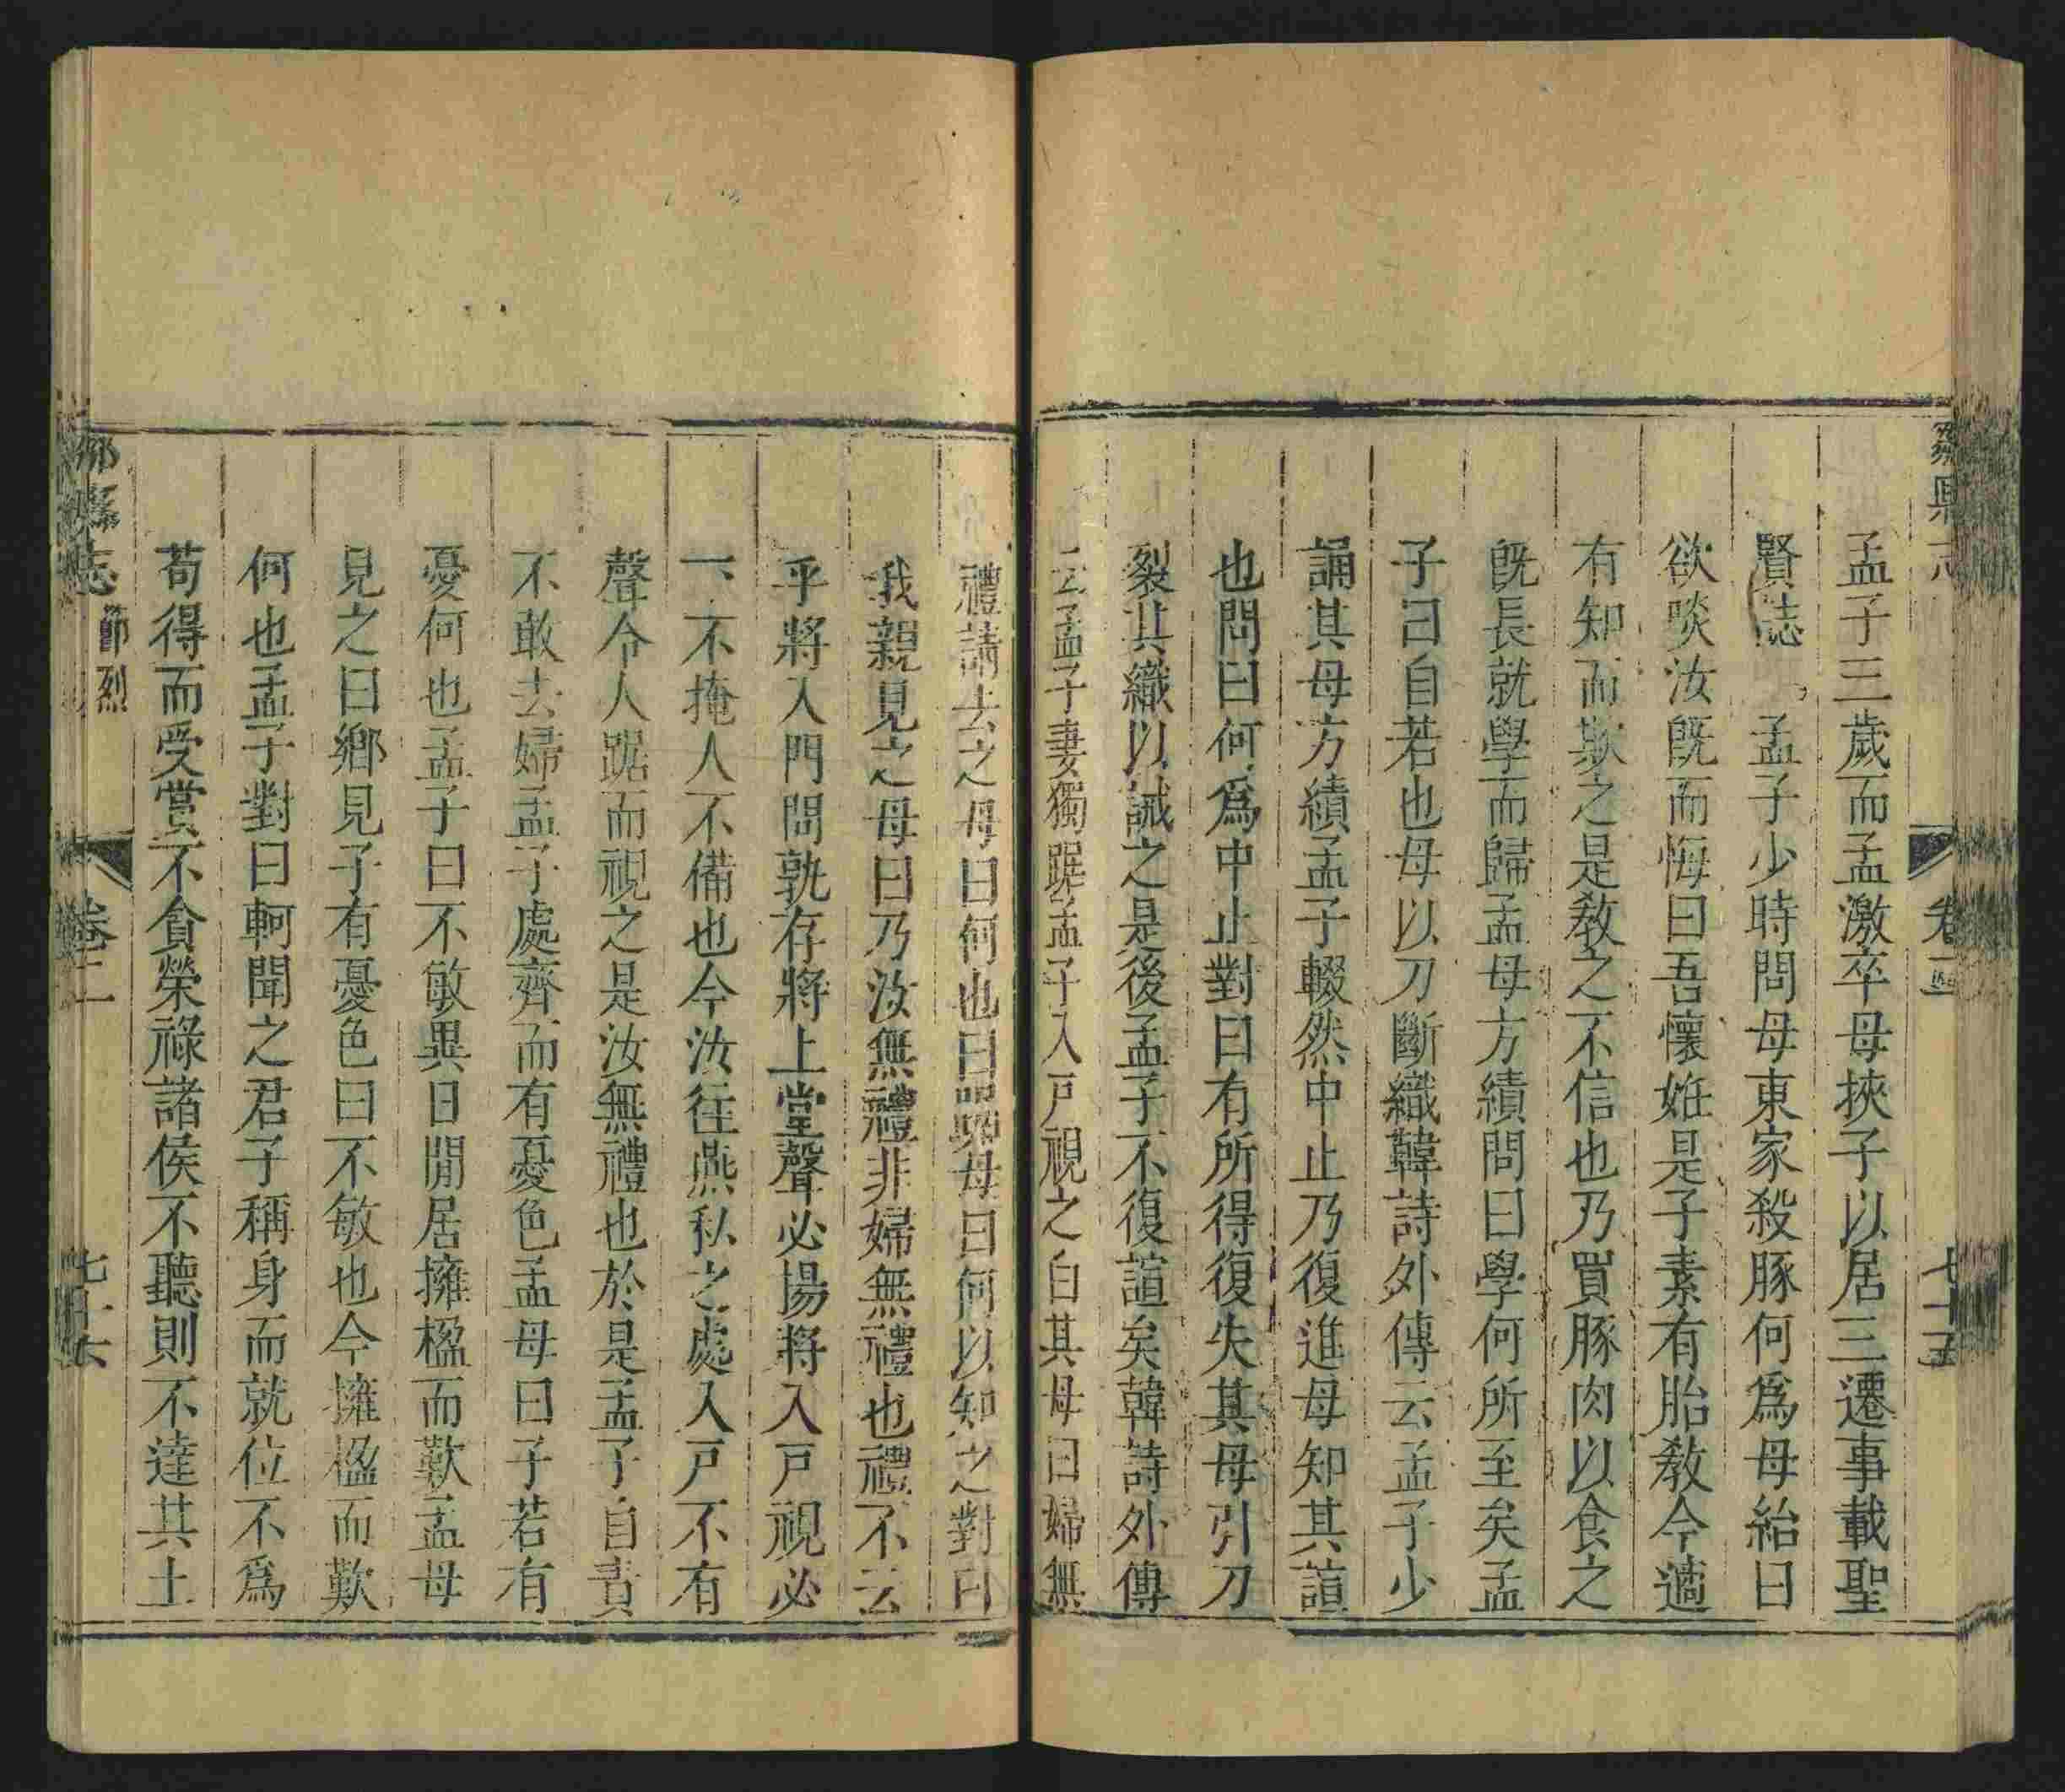 孟子三歲而孟激卒母挾子以居三遷事載聖
賢誌　孟子少時問母東家殺豚何爲母紿曰
欲啖汝旣而悔曰吾懷姙是子素有胎敎今適
有知而欺之是敎之不信也乃買豚肉以食之
旣長就學而歸孟母方績問曰學何所至矣孟
子曰自若也母以刀斷織韓詩外傳云孟子少
誦其母方績孟子輟然中止乃復進母知其諠
也問曰何爲中止對曰有所得復失其母引刀
裂其織以誡之是後孟子不復諠矣韓詩外傳
云孟子妻獨踞孟子入戸視之白其母曰婦無
禮請去之母曰何也曰踞母曰何以知之對曰
我親見之母曰乃汝無禮非婦無禮也禮不云
乎將入門問孰存將上堂聲必揚將入戸視必
下不掩人不備也今汝往燕私之處入戸不有
聲令人踞而視之是汝無禮也於是孟子自責
不敢去婦孟子處齊而有憂色孟母曰子若有
憂何也孟子曰不敏異日閒居擁楹而歎孟母
見之曰鄕見子有憂色曰不敏也今擁楹而歎
何也孟子對曰軻聞之君子稱身而就位不爲
苟得而受賞不貪榮祿諸侯不聽則不達其土
鄒縣志
節烈
卷二
七十六